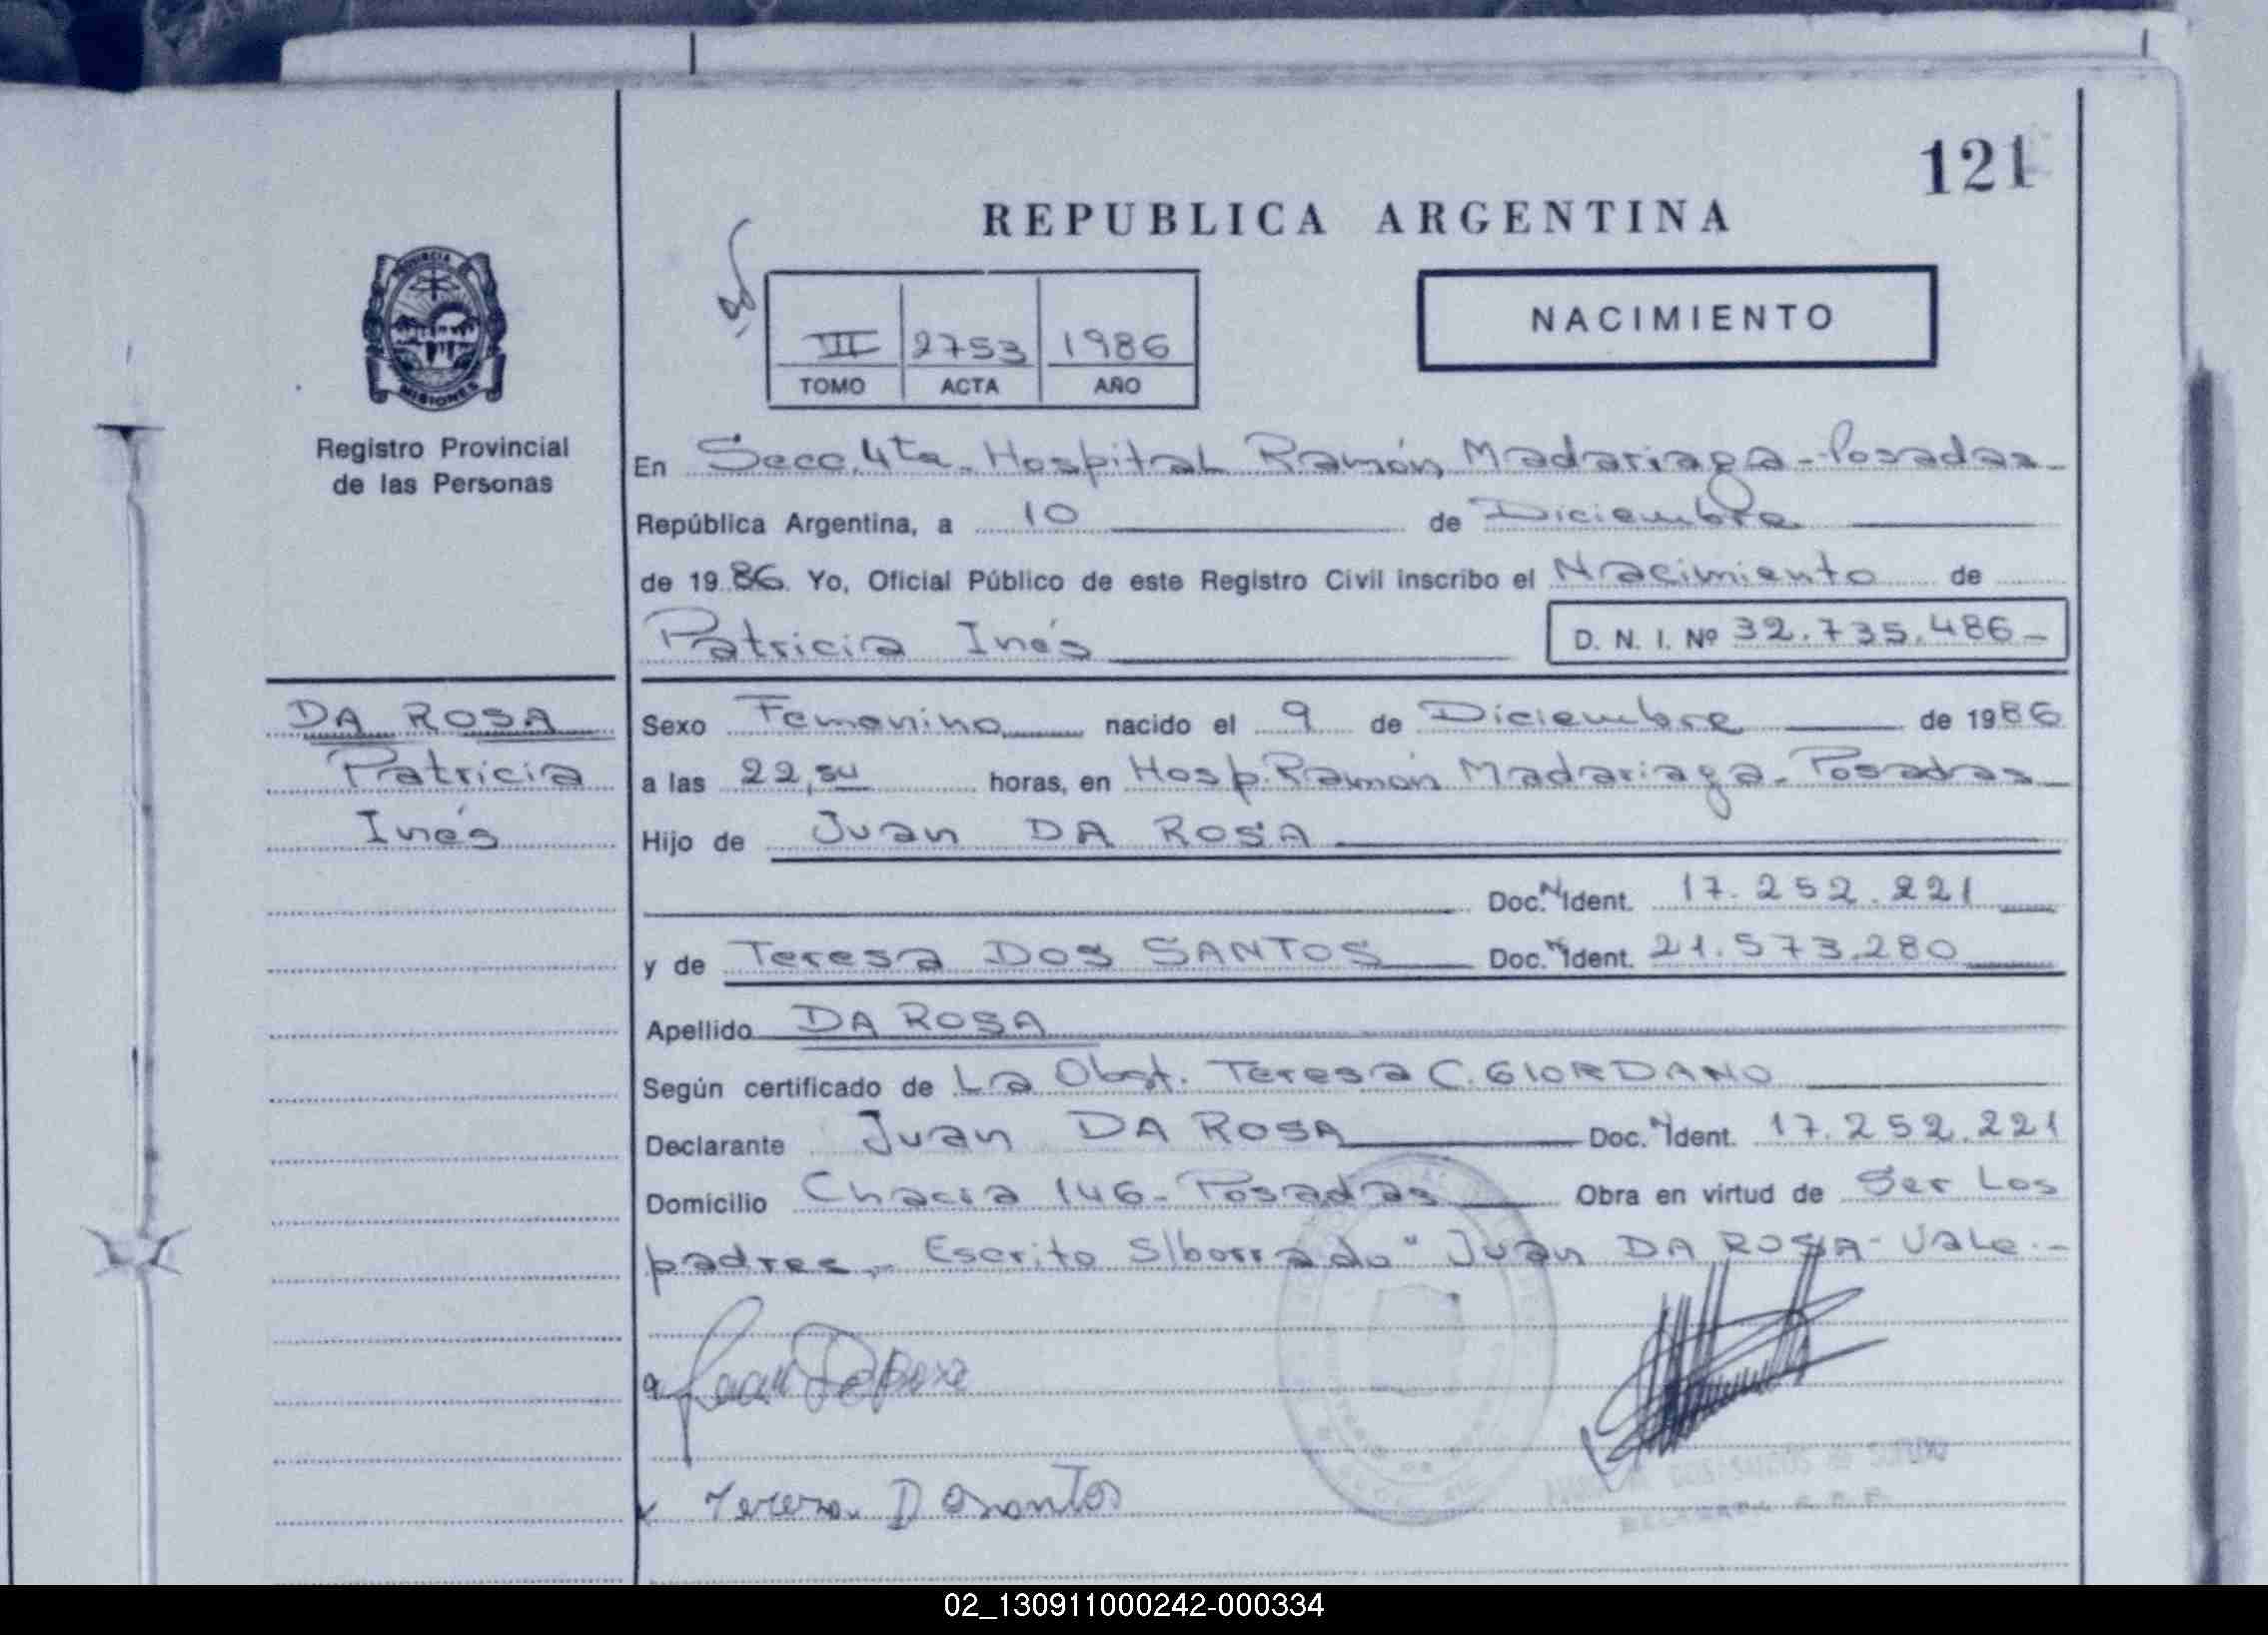 121
REPUBLICA ARGENTINA
PROVINCIA DE
MISIONES
Registro Provincial
de las Personas
VII 2753 1986
TOMO ACTA AÑO
NACIMIENTO
En Secc. 4ta. Hospital Ramón Madariaga - Posadas
República Argentina, a 10 de Diciembre
de 1986. Yo, Oficial Público de este Registro Civil inscribo el Nacimiento de
Patricia Inés D. N. I. Nº 32.735.486
DA ROSA
Patricia
Inés
Sexo Femenino nacido el 9 de Diciembre de 1986
a las 22, horas, en Hosp. Ramón Madariaga - Posadas
Hijo de Juan DA ROSA
Doc. N Ident. 17.252.221
y de Teresa DOS SANTOS Doc. N Ident. 21.573.280
Apellido DA ROSA
Según certificado de La Obst. Teresa C. GIORDANO
Declarante Juan DA ROSA Doc. N Ident. 17.252.221
Domicilio Chacra 146 - Posadas Obra en virtud de Ser Los
padres.- Escrito S/borrado "Juan DA ROSA - Vale.-
Teresa D osantos
02_130911000242-000334